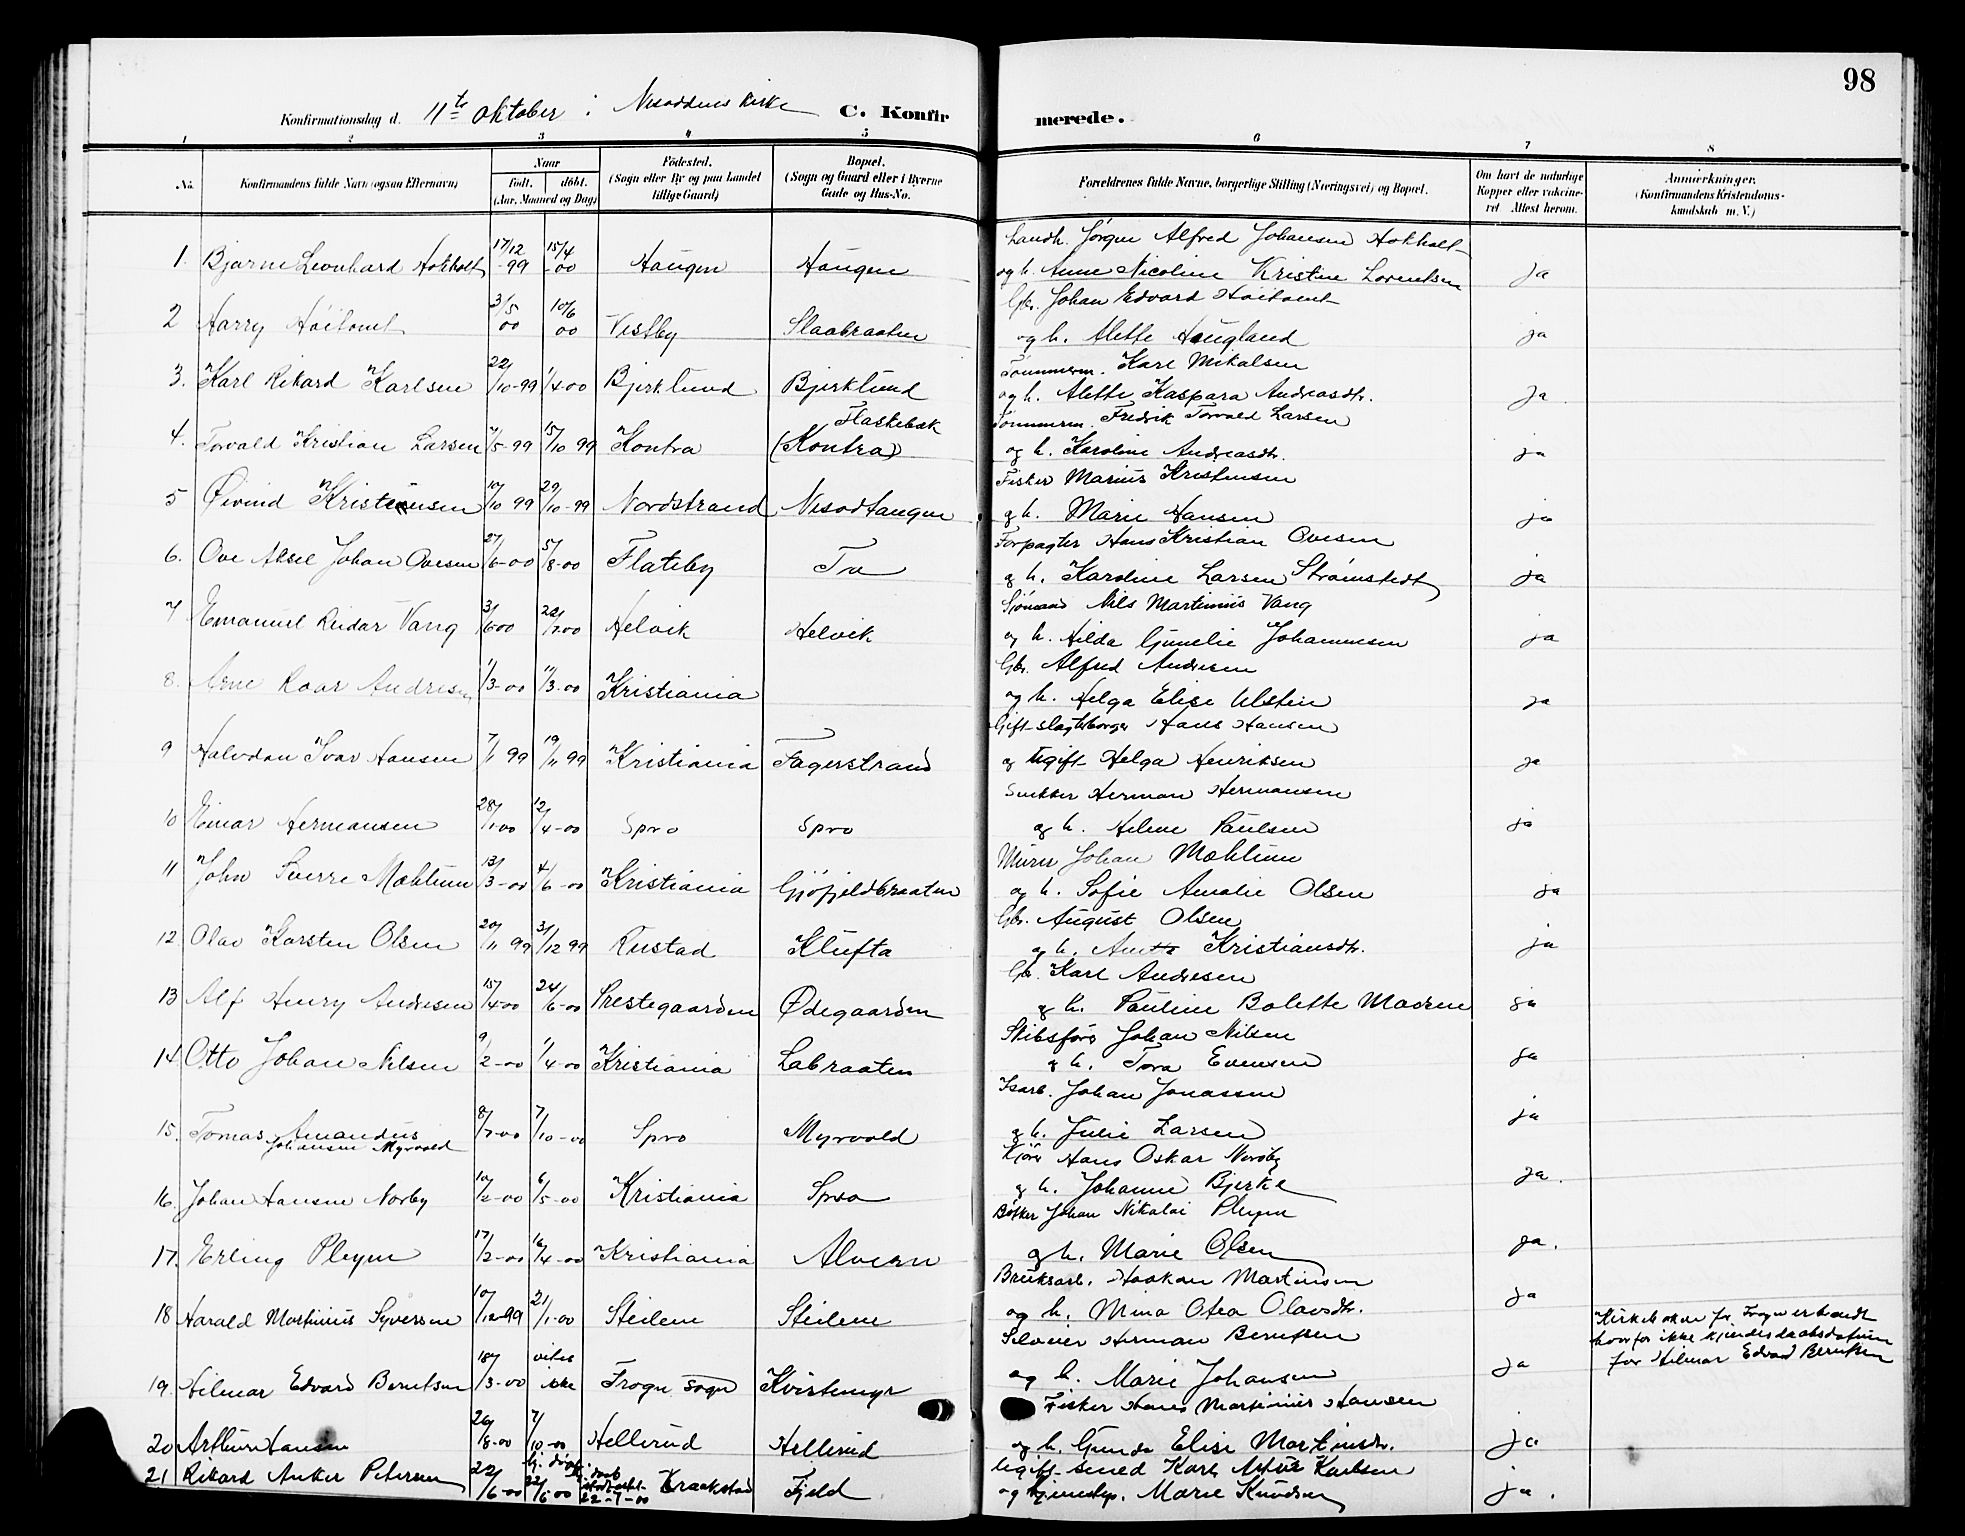 98
Konfirmationsdag d. 11te Oktober i Nesoddens Kirke C. Konfirmerede.
1 2 3 4 5 6 7 8
No. Konfirmandens fulde Navn (ogsaa Efternavn) Naar født. døbt. (Aar, Maaned og Dag) Fødested. (Sogn eller By og paa Landet tillige Gaard) Bopæl. (Sogn og Gaard eller i Byerne Gade og Hus-No. Forældrenes fulde Navne, borgerlige Stilling (Næringsvei) og Bopæl. Om havt de naturlige Kopper eller vakcineret Attest herom. Anmærkninger. (Konfirmandens Kristendomskundskab m. V.)
Landh. Jørgen Alfred Johansen Hokholt
1. Bjarne Leonhard Hokholt 17/12-99 15/4-00 Haugen Haugen og h. Anne Nicoline Kristine Lorentsen ja
Gbr. Johan Edvard Høitomt
2 Harry Høitomt 3/5 00 10/6 00 Vestby Slaabraaten og h. Alette Haugland ja
Tømmerm. Karl Mikalsen
3. Karl Rikard Karlsen 22/10-99 1/4-00 Bjerklund Bjerklund og h. Alette Kaspara Andreasdtr. ja
Tømmerm. Fredrik Torvald Larsen
4. Torvald Kristian Larsen /5-99 15/10 99 Kontra Flaskebæk (Kontra) og h. Karoline Andreasdtr. ja
Fisker Marius Kristensen
5 Øivind Kristensen 10/10 99 29/10-99 Nordstrand Nesodtangen og h. Marie Hansen ja
Forpagter Hans Kristian Ovesen
6. Ove Aksel Johan Ovesen 27/6-00 5/8-00 Flateby Tra og h. Karoline Larsen Strømstedt ja
Sjømand Nils Martinius Vang
7 Emanuel Reidar Vang 3/6 00 22/7 00 Helvik Helvik og h. Hilda Gunelie Johannesen ja
Gbr. Alfred Andresen
8. Arne Roar Andresen 1/3-00 11/3-00 Kristiania og h. Helga Elise Ulstein ja
Gift slagterborger Hans Hansen
9 Halvdan Ivar Hansen 7/1 99 19/11 99 Kristiania Fagerstrand og Ugift Helga Henriksen ja
Snekker Herman Hermansen
10 Einar Hermansen 28/1 00 12/4-00 Spro Spro og h. Helene Paulsen ja
Murer Johan Mæhlum
11 John Sverre Mæhlum 13/3-00 4/6-00 Kristiania Gjøfjeldbraaten og h. Sofie Amalie Olsen ja
Gbr. August Olsen
12. Olav Karsten Olsen 20/11 99 31/12 99 Rustad Klufta og h. Anette Kristiansdtr. ja
Gbr. Karl Andresen
13 Alf Henry Andresen 15/4-00 24/6-00 Prestegaarden Ødegaarden og h. Pauline Bolette Madsen ja
Skibsfører Johan Nilsen
14 Otto Johan Nilsen 9/2-00 1/4-00 Kristiania Labraaten og h. Tora Evensen ja
Isarb. Johan Jonassen
15. Tomas Amandus Johansen Myrvold 8/7-00 7/10-00 Spro Myrvold og h. Julie Larsen ja
Kjører Hans Oskar Nordby
16. Johan Hansen Norby 10/2-00 6/5-00 Kristiania Spro og h. Johanne Bjerke ja.
Bøkker Johan Nikolai Pleym
17. Erling Pleym 17/2-00 16/4-00 Kristiania Alvern og h. Marie Olsen ja.
Bruksarb. Haakon Martinsen
18 Harald Martinius Syversen 10/12-99 21/1-00 Steilene Steilene og h. Mina Otea Olavsdtr. ja
Kirkeboken for Frogn er brendt
hvorfor ikke kjendes daabsdatum
for Hilmar Edvard Berntsen
Herman Berntsen
19. Hilmar Edvard Berntsen 18/3-00 vites ikke Frogn Sogn Kvistemyr og h. Marie Johansen ja
Fisker Hans Martinius Hansen
20 Arthur Hansen 26/8-00 7/10-00 Hellerud Hellerud og h. Gunda Elise Martinsdtr. ja
Ugift smed Karl Artur Karlsen
21 Rikard Anker Petersen 22/6-00 22/6 00 22-7-00 Kraakstad Fjeld og tjenestep. Marie Knudsen ja.